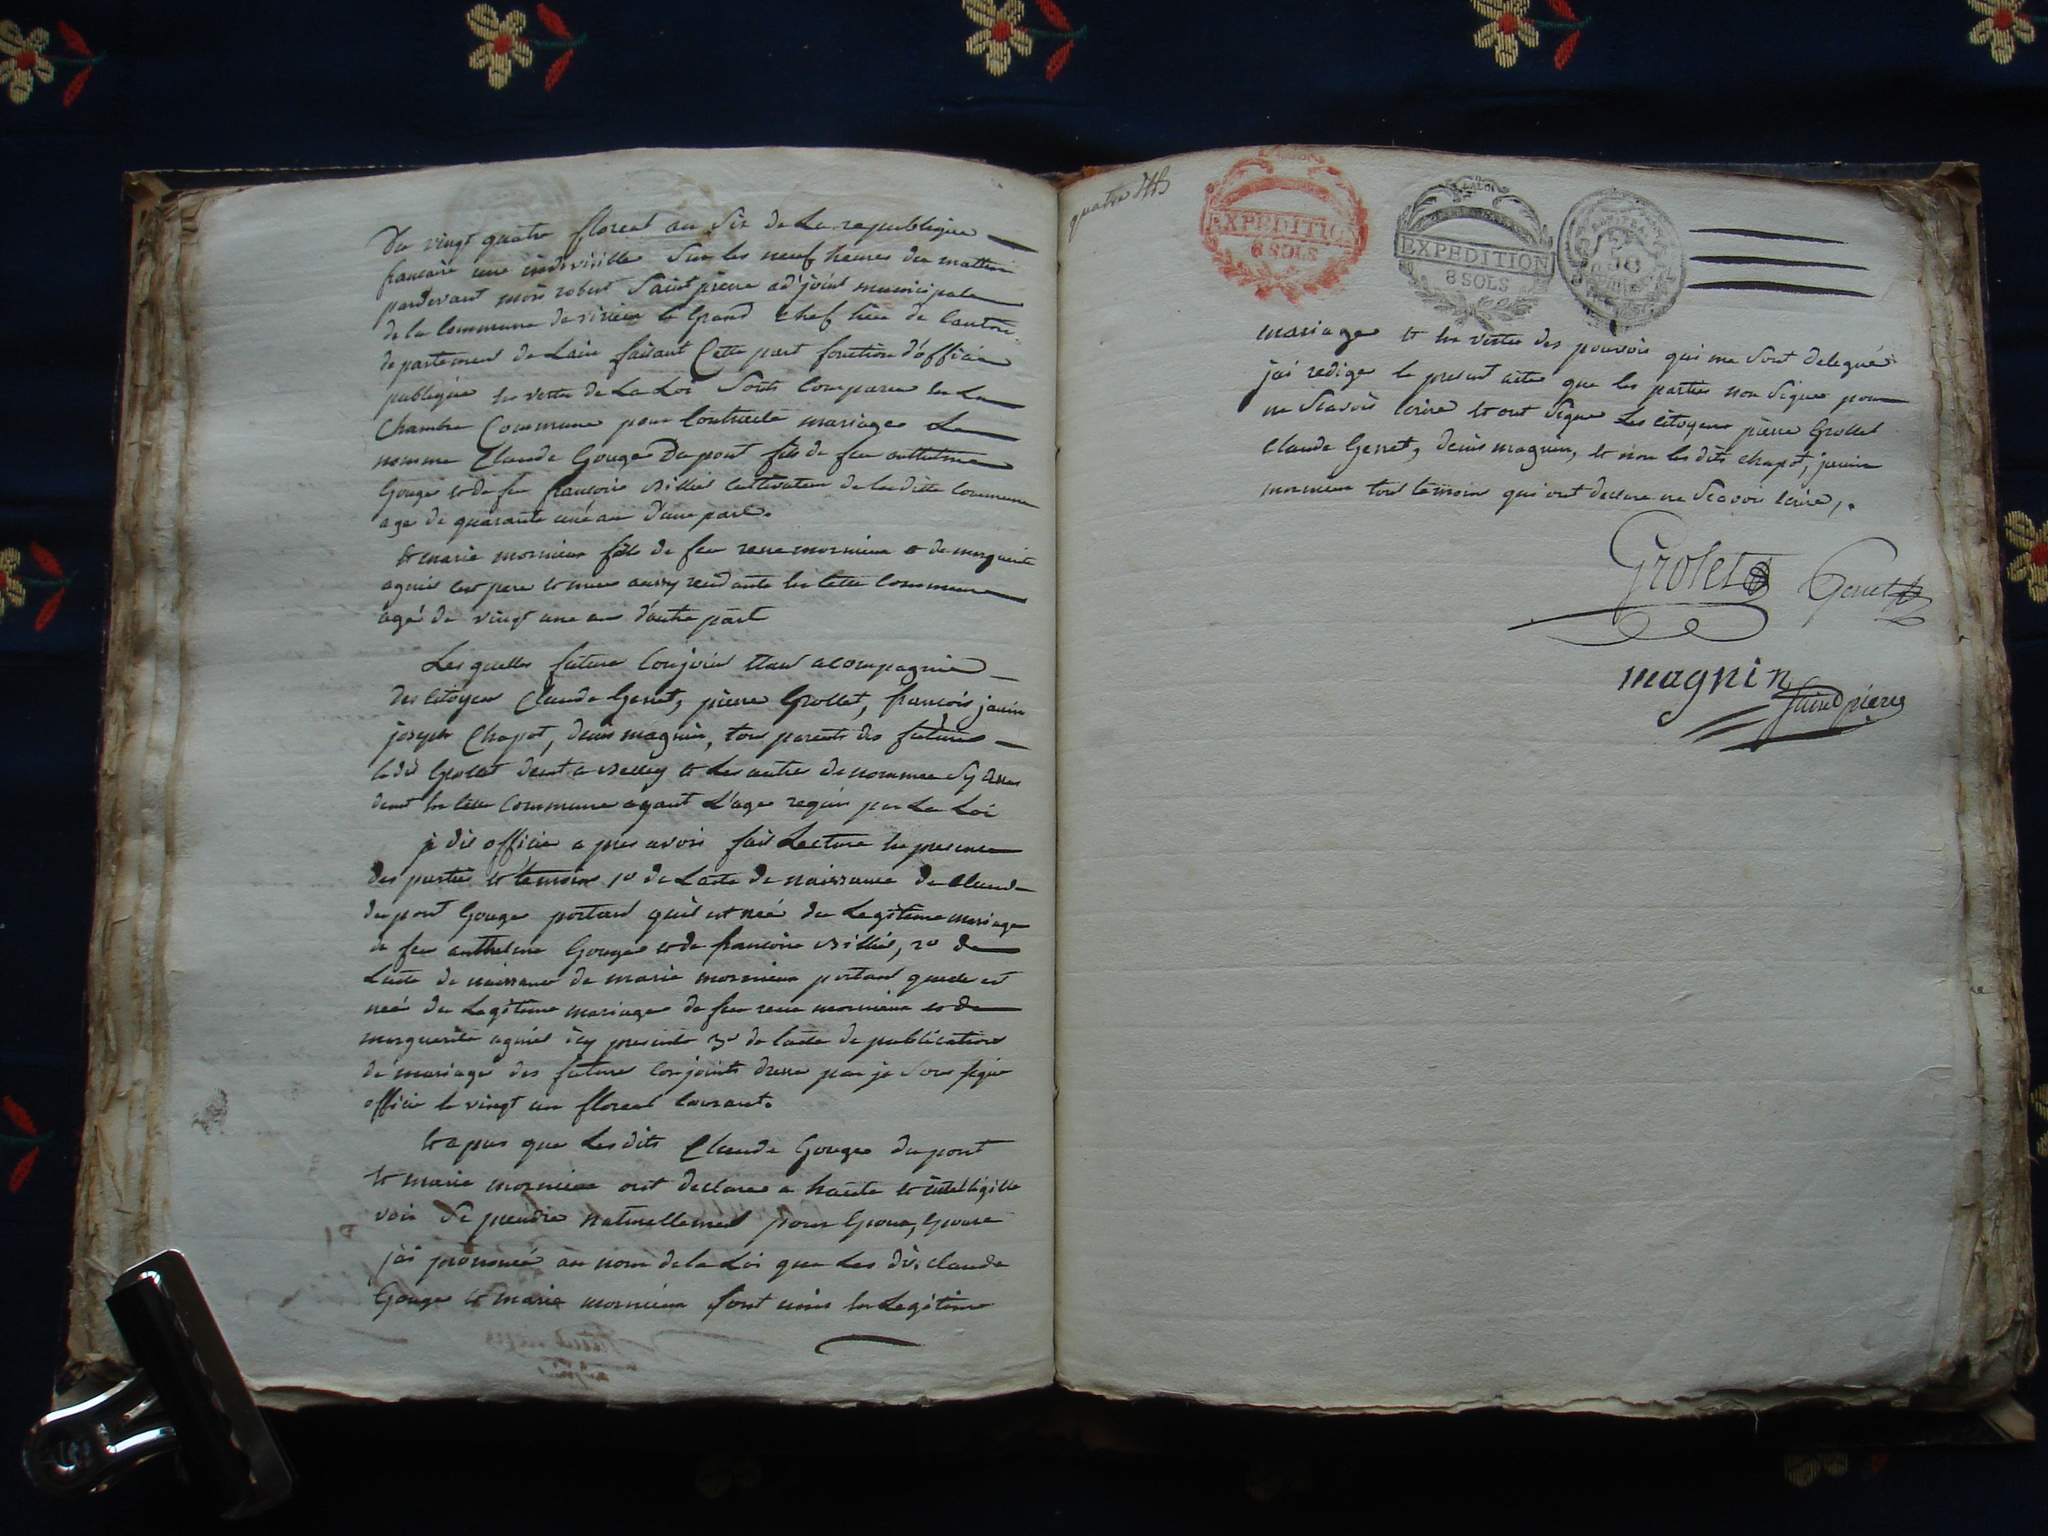 Du vingt quatre floreal an Six de La republique
francaise une indivisible Sur les neuf heures du mattin
pardevant mois robert Saint pierre adjoint municipale
de la Commune de virieu le Grand chef lieu de Canton
departement de Lain faisant Cette part fonction d'officié
publique en vertu de La Loi Sonts Comparu en La
Chambre Commune pour Contracté mariage Le
nomme Claude Gouge Dupont fils de feu anthelme
Gouge et de feu francoise Billiet Cultivateur de la ditte Commune
age de quarante une an D'une part.
et marie mornieux fille de feu rene mornieux et de marguerite
ses pere et mere aussy residante en Cette Commune
agé de vingt une an d'autre part
Les quelles future Conjoint etant acompagnie
des Citoyen Claude Genet, pierre Grollet, francois janin
joseph Chapot, denis magnin, tous parents des futures
le dit Grollet a Belley et Les autre denommee
en Cette Commune ayant L'age requis par La Loi
je dit officié apres avoir fait Lecture en presence
des partie et temoins 1º de Lacte de naissance de Claude
dupont Gouge portant quil est neé du Legitime mariage
de feu anthelme Gouge et de francoise Billiet, 2º de
Lacte de naissance de marie mornieux portant quele est
neé du Legitime mariage de feu rene mornieux et de
marguerite icy presente 3º de lacte de publication
de mariage des future Conjoints dresse par je Sous signé
officié le vingt un floreal Courant.
et apres que Les dits Claude Gouge dupont
et marie mornieux ont declare a haute et intelligille
voix Se prendre naturellement pour Epoux, Epouse
j'ai prononcé au nom de la Loi que Les dits claude
Gouge et marie mornieux sont unis en Legitime
quatre
EXPEDITION
8 SOLS
EXPEDITION
8 SOLS
mariage et en vertu des pouvoir qui me Sont delegué
jai redige le present acte que les parties non Signe pour
ne Scavoir Ecrire et ont Signe Les Citoyens pierre Grollet
Claude Genet, denis magnin, et non les dits chapot, janin
mornieux tous temoins qui ont declare ne Scavoir Ecrire,.
Grolet
Genet
magnin
Saint pierre